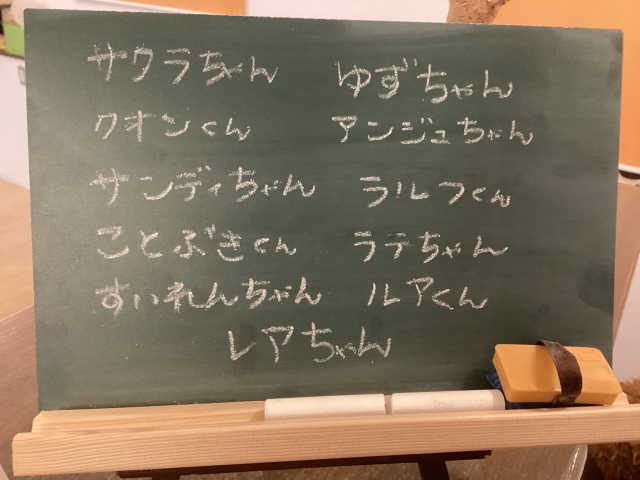 サクラちゃん ゆずちゃん
クオンくん アンジュちゃん
サンディちゃん ラルフくん
ことぶきくん ラテちゃん
すいれんちゃん ルアくん
レアちゃん